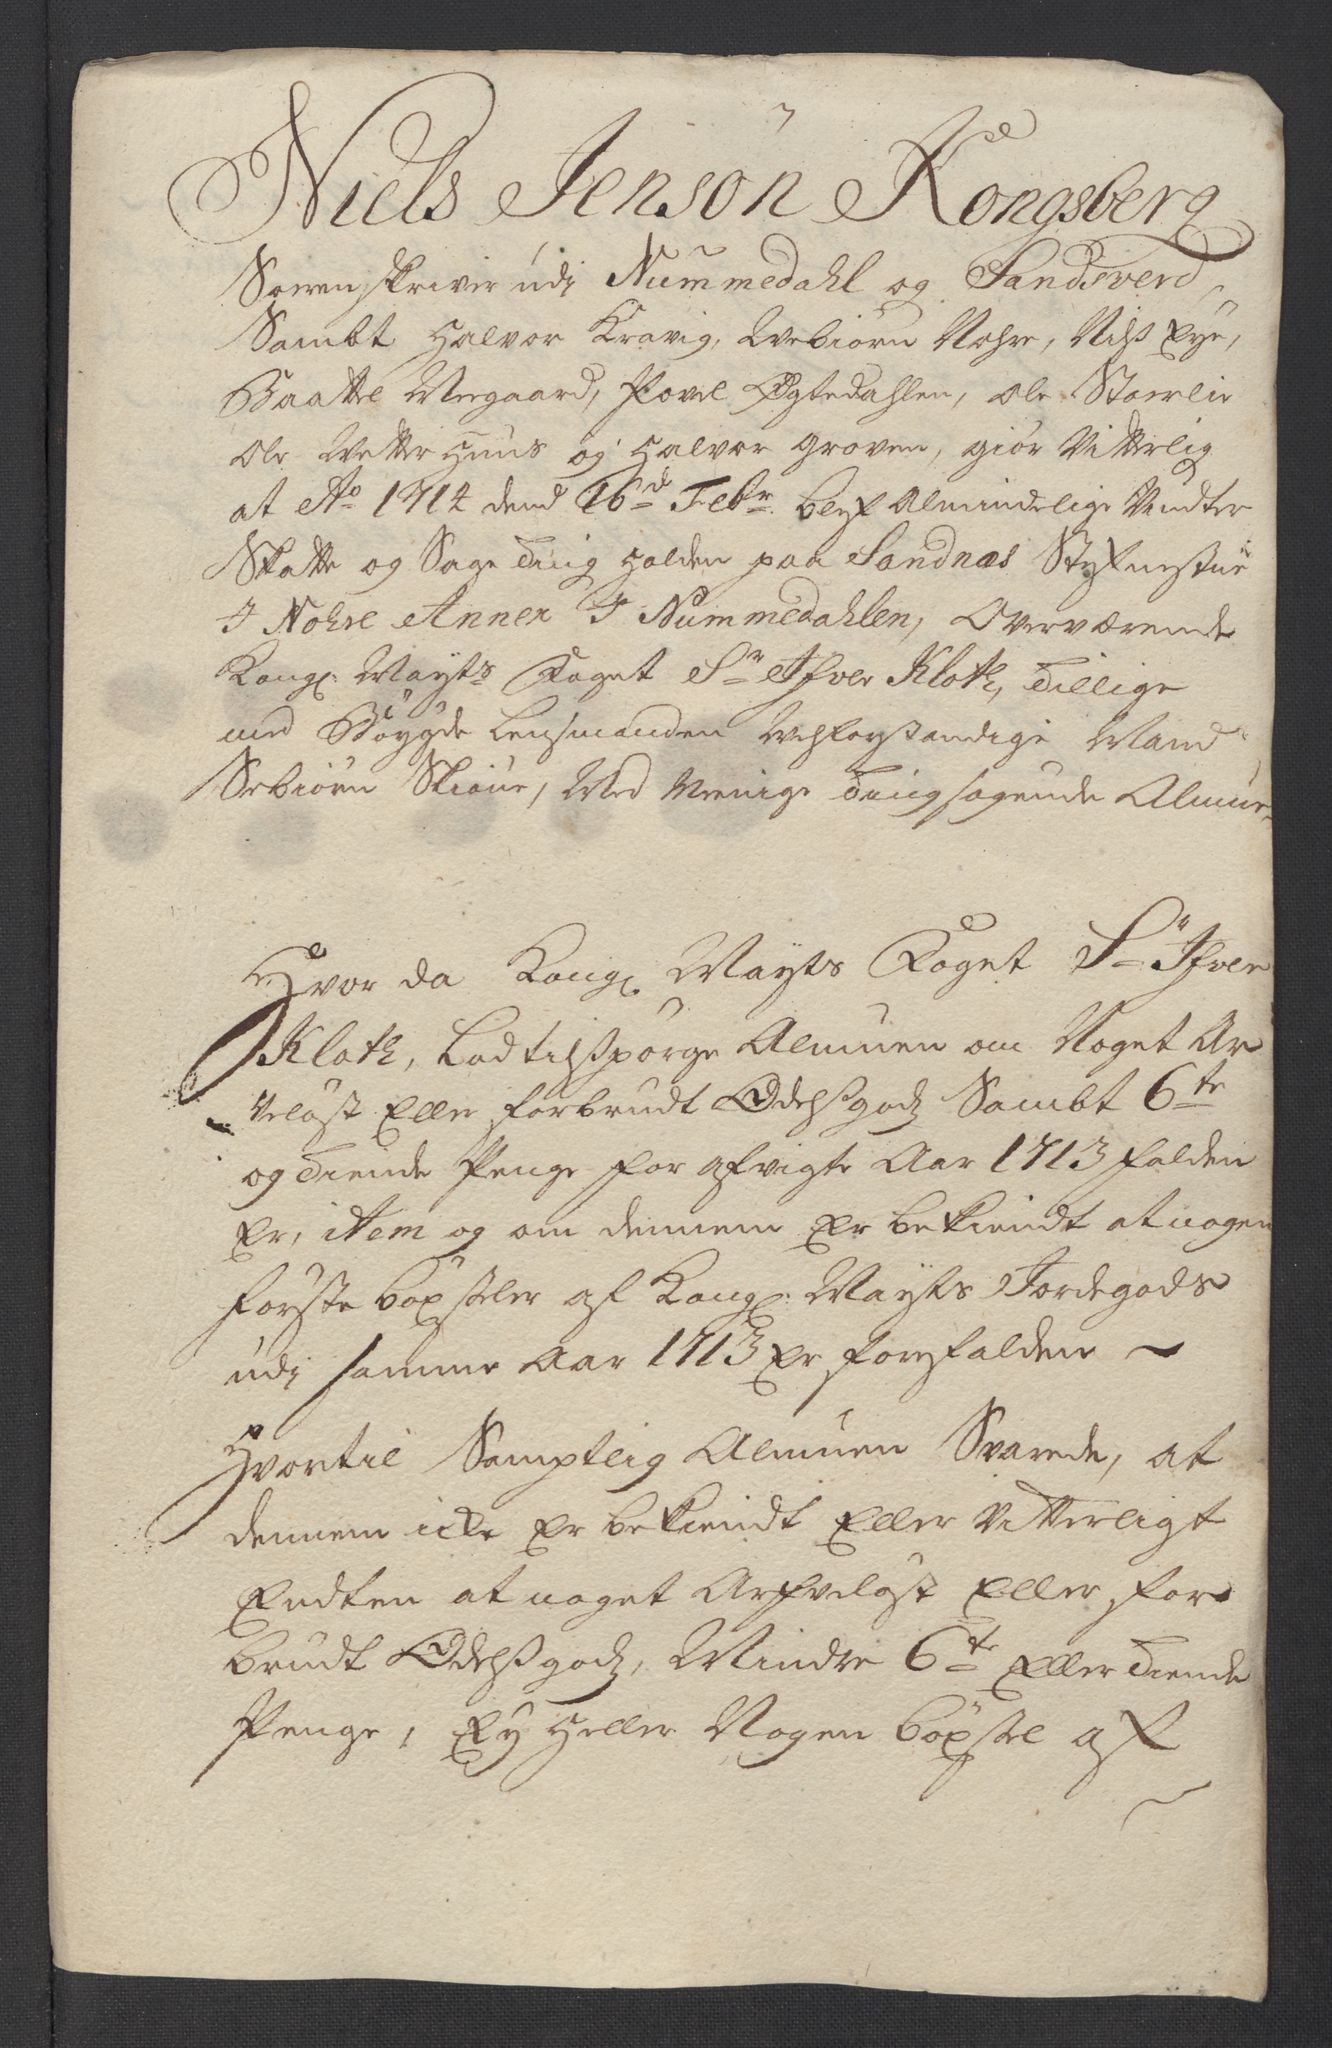 Niels Jensøn Kongsberg
Sorenskriver udi Nummedahl og Sandsverd,
Sambt Halvor Kravig, Webiørn Nohre, Nilß Eye,
Baattel Megaard, Povel Ögtedahlen, ole Staerlie
Ole Wetterhuus og Halvor groven, giør Vitterlig
at Ao 1714 dend 16d Febr. blef Almindelige Vindter
Skatte og Sage Ting Holden paa Sandnæs Stefnestue
I Nohre Annex I Nummedahlen, Overværende
Kongl: Mayts Foget Sr Ifver Kloth, Tillige
med Böygde Lensmanden Velforstandige Mand
Sebiörn Skiøue, Med Menige Tingsøgende Almue,
Hvor da Kongl. Mayts Foget Sr Ifver
Kloth, Lod tilspørge Almuen om Noget Ar
veløst Eller forbrudt Odelsgodz Sambt 6te
og Tiende Penge for afvigte Aar 1713 falden
Er, item og om dennem Er bekiendt at nogen
første böxsler af Kongl: Mayts Jordegods
udi samme Aar 1713 Er forefalden
Hvortil Samptlig Almuen Svarede, at
dennem icke Er bekiendt Eller Vitterligt
Endten at noget Arfveløst Eller for
brudt Odelsgodz, Mindre 6te Eller Tiende
Penge, Ey Heller Nogen böxsel af